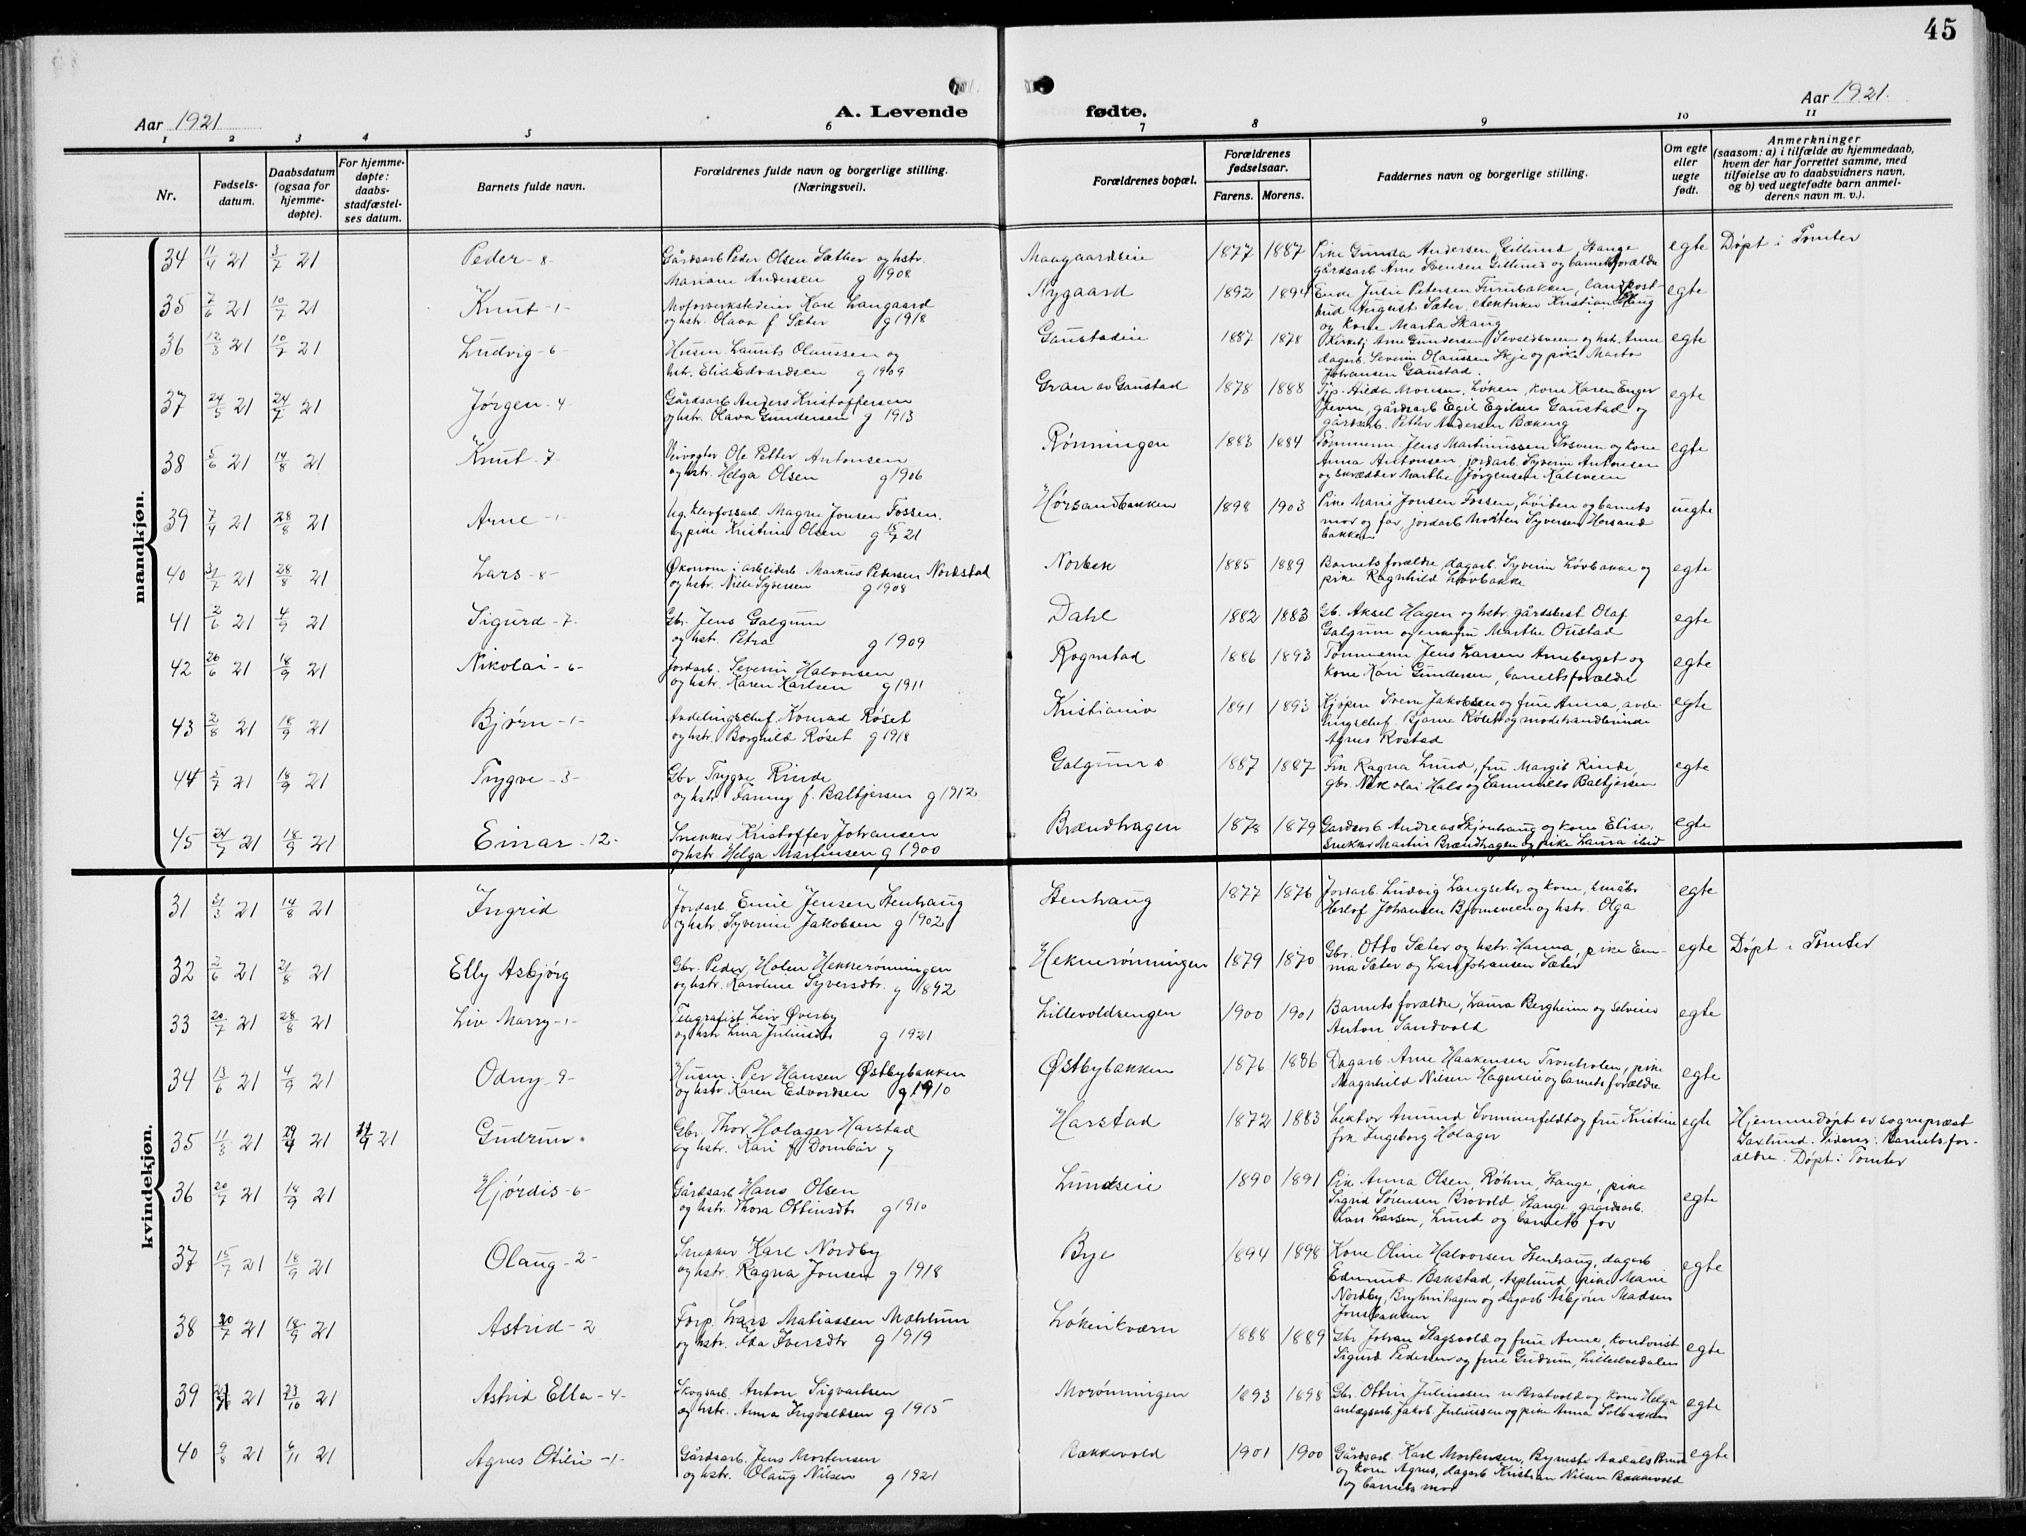 45
Aar 1921
A. Levende fødte.
Aar 1921.
1 2 3 4 5 6 7 8 9 10 11
Nr.
Fødsels-
datum.
Daabsdatum
(ogsaa for
hjemme-
døpte).
For hjemme-
døpte:
daabs-
stadfæstel-
ses datum.
Barnets fulde navn.
Forældrenes fulde navn og borgerlige stilling.
(Næringsvei).
Forældrenes bopæl.
Forældrenes
fødselsaar.
Farens. Morens.
Faddernes navn og borgerlige stilling.
Om egte
eller
uegte
født.
Anmerkninger
(saasom: a) i tilfælde av hjemmedaab,
hvem der har forrettet samme, med
tilføielse av to daabsvidners navn,
og b) ved uegtefødte barn anmel-
derens navn m. v.).
mandkjøn.
34 11/4 21 3/7 21 Peder - 8 Gårdsarb Peder Olsen Sæther og hstr. Mariane Andersen g 1908 Maagaardseie 1877 1887 Pike Gunda Andersen, Gillund, Stange
gårdsarb Arne Svensen Gillund og barnets forældre egte Døpt i Tomter
35 7/6 21 10/7 21 Knut - 1 - Karl Langaard
og hstr. Olava f. Sæter g 1918 Nygaard 1892 1894 Enke Julie Petersen Furubakken, landpost-
bud August Sæter, elektriker Kristian Skaug
og kone Marta Skaug egte
36 12/3 21 10/7 21 Ludvig - 6 - Husm. Laurits Olaussen og
hstr. Elie Edvardsen g 1909 Gaustadeie 1887 1878 Kirketj Arne Gundersen og hstr. Anne
dagarb. Severin Olaussen Skje og pike Marta
Johansen Gaustad. egte
37 24/5 21 24/7 21 Jørgen - 4 Gårdsarb Anders Kristoffersen
og hstr. Olava Gundersen g 1913 Gran av Gaustad 1878 1888 Tjp. Hilda Monsen, Løken, kone Karen Enger
gårdsarb Egil Egilsen Gaustad og
gårdsarb. Petter Andersen Bæking egte
38 5/6 21 14/8 21 Knut - 7 Veivogter Ole Petter Antonsen
og hstr. Helga Olsen g 1906 Rønningen 1883 1884 Tømmerm Jens Martinussen og kone
Anna Antonsen, jordarb. Syverin Antonsen
og skrædder Marthe Jørgensen Kalsveen egte
39 7/4 21 28/8 21 Arne - 1 - Ug. Klevfossarb. Magne Jonsen Fossen,
og pike Kristine Olsen g 15/7 21 Hørsandbakken 1898 1903 Pike Marie Jonsen Fossen, Løiten og barnets
mor og far, jordarb Morten Syversen Horsand-
bakken uegte
40 31/7 21 28/8 21 Lars - 8 - Økonom i arbeiderb Markus Pedersen Nordstad
og hstr. Nille Syversen g 1908 Norbek 1885 1889 Barnets forældre, dagarb. Syverin Løvbakke og
pike Ragnhild Løvbakke egte
41 2/6 21 4/9 21 Sigurd - 7 - Gbr. Jens Galgum
og hstr. Petra g 1909 Dahl 1882 1883 Gb. Aksel Hagen og hstr. gårdsbest Olaf
Galgum og enkefru Marthe Oustad egte
42 26/6 21 18/9 21 Nikolai - 6 - Jordarb. Severin Halvorsen
og hstr. Karen Karlsen g 1911 Rognstad 1886 1893 Tømmerm Jens Larsen Arneberget og
kone Kari Gundersen, barnetsforældre egte
43 2/8 21 18/9 21 Bjørn - 1 - Avdelingschef Konrad Røset
og hstr. Borghild Røset g 1918 Kristiania 1891 1893 Kjøpm Sverre Jakobsen og frue Anna, avde-
lingschef Bjarne Røset og modehandlerinde
Agnes Rostad egte
44 5/7 21 18/9 21 Trygve - 3 - Gbr. Trygve Rinde
og hstr. Fanny f. Balbjersen g 1912 Galgum s 1887 1887 Frk Ragna Lund, frue Margit Rinde
gbr. Nikolai Hals og Balbjersen egte
45 24/7 21 18/9 21 Einar - 12 - Snekker Kristoffer Johansen
og hstr. Helga Martinsen g 1900 Brændhagen 1878 1879 Gårdsarb Andreas Skjønhaug og kone Elise,
snekker Martin Brændhagen og pike Laura ibid egte
kvindekjøn.
31 31/3 21 14/8 21 Ingrid Jordarb. Emil Jensen Stenhaug
og hstr. Syverine Jakobsen g 1902 Stenhaug 1877 1876 Jordarb. Ludvig Langseter og kone, småbr
Herlof Johansen Bjørnsveen og hstr. Olga egte
32 2/6 21 21/8 21 Elly Asbjørg Gbr. Peder Holen Heknerønningen
og hstr. Karoline Syversdtr. g 1892 Heknerønningen 1879 1870 Gbr. Otto Sæter og hstr. Hanna, pike Em-
ma Sæter og Lars Johansen Sæter egte Døpt i Tomter
33 20/7 21 28/8 21 Liv Marry - 1 - Telegrafist Leiv Øverby
og hstr Lina Juliusdtr g 1921 Lillevoldsengen 1900 1901 Barnets forældre, Laura Bergheim og selveier
Anton Sandvold egte
34 13/6 21 4/9 21 Odny - 9 - Husm. Per Hansen Østbybakken
og hstr. Karen Edvardsen g 1910 Østbybakken 1876 1886 Dagarb. Arne Haakensen Tronholen, pike
Magnhild Nilsen Hageneie og barnets forældre egte
35 11/3 21 21 21 Gudrun Gbr. Thor Holager Harstad
og hstr. Kari f Dombår g Harstad 1872 1883 Lektor Amund Sommerfeldt og frue Kristine
frk Ingeborg Holager egte Hjemmedøpt av sogneprest
Vidner: Barnets for-
ældre. Døpt i Tomter
36 20/7 21 18/9 21 Hjørdis - 6 - Gårdsarb Hans Olsen
og hstr. Thora Ottinsdtr g 1910 Lundseie 1890 1891 Pik Anna Olsen, Røhne, Stange, pike
Sigrid Sørensen Brovold, Stange, gaardsarb.
Lars Larsen, Lund og barnets far egte
37 15/7 21 18/9 21 Olaug - 2 - Snekker Karl Nordby
og hstr. Ragna Jonsen g 1918 Bye 1894 1898 Kone Oline Halvorsen Stenhaug, dagarb
Edmund Bakstad, Asplund, pike Marie
Nordby, Bryhnihagen og dagarb Asbjørn Madsen
Jonsbakken egte
38 30/7 21 18/9 21 Astrid - 2 Forp. Lars Matiassen Mohlum
og hstr. Ida Iversdtr g 1919 Løkenkværn 1888 1889 Gbr Johan Slagsvold og frue Anne, kontorist
Sigurd Pedersen og frue Gudrun, Lilleelvedalen egte
39 21 23/10 21 Astrid Ella - 4 - Skogsarb. Anton Sigvartsen
og hstr. Anna Ingvaldsen g 1915 Morønningen 1893 1898 Gbr. Ottin Juliussen n Bratvold og kone Helga
anlægsarb. Jakob Juliussen og pike Anna Solbakken egte
40 9/8 21 6/11 21 Agnes Otilie - 1 - Gårdsarb. Jens Mortensen
og hstr. Olaug Nilsen g 1921 Bækkevold 1901 1900 Gårdsarb. Karl Mortensen, Aadals Bruk
og kone Agnes, dagarb Kristian Nilsen Bækkevold
og barnets mor egte